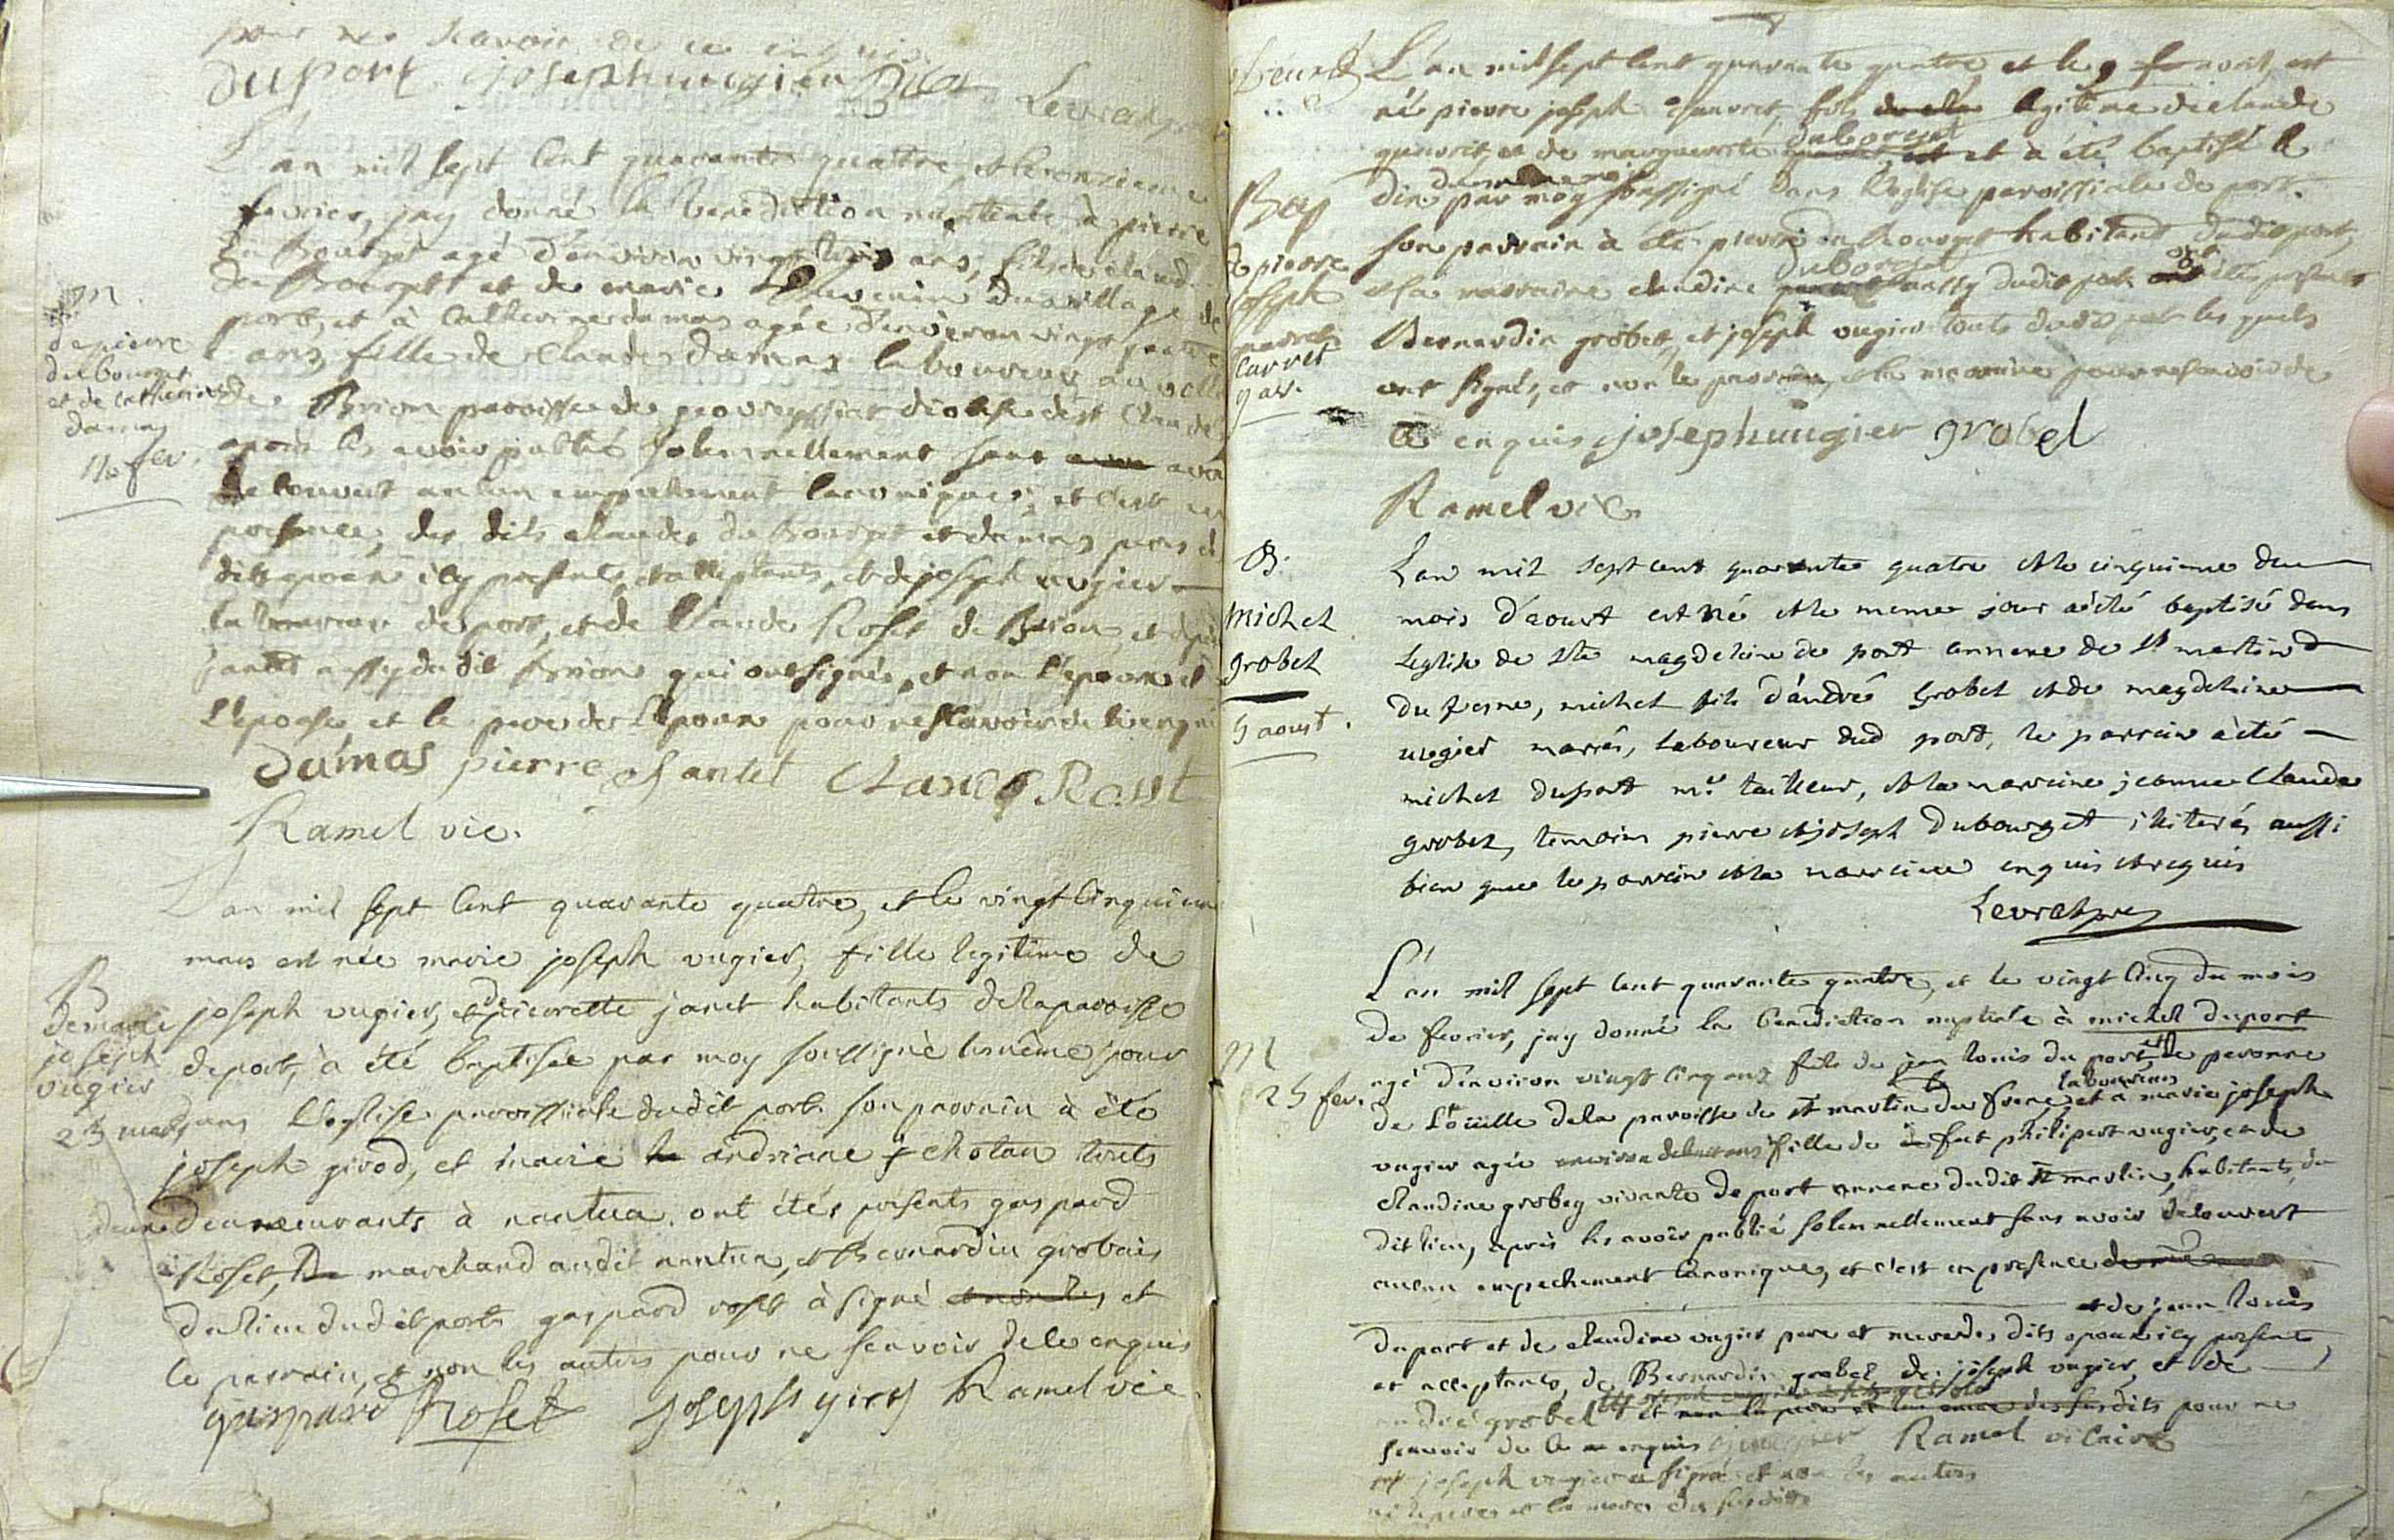 pour ne scavoir de ce enquis
duport joseph uugier
Levrat
L'an mil sept cent quarante quatre, et le onzieme
fevrier, jay donné la benediction nuptiale à pierre
du Bourget agé d'environ vingt trois ans, fils de claude
du Bourget et de marie du village de
port, et à catherine damas agée d'environ vingt quatre
ans, fille de Claude damas laboureur au
de Brion paroisse de diocese de st Claude
après les avoir publiés solennellement sans avoir
decouvert aucun empechement canonique; et c'est en
presence, des dits claude du Bourget et damas peres des
dits epoux icy presents, et acceptants, et de joseph uugier
laboureur de port, et de Claude Roset de Brion, et de pierre
janet aussy du dit Brion qui ont signés, et non l'epoux et
l'epouse, et le pere de l'epoux pour ne scavoir de ce enquis
damas pierre Claude Roset
Ramel vic.
m
de pierre
du bourget
et de catherine
damas
11e fev.
L'an mil sept cent quarante quatre, et le vingt cinquieme
mars est née marie joseph uugier, fille legitime de
joseph uugier, et de pierrette janet habitants de la paroisse
de port, à été baptisée par moy soussigné le même jour
dans l'eglise paroissiale dudit port. son parrain à été
joseph girod, et marie andriane chotan touts
deux demeurants à nantua. ont étés presents gaspard
Roset, marchand audit nantua, et Bernardin grobais
du lieu dudit port. gaspard roset à signé et non les et
le parrain, et non les autres pour ne scavoir de ce enquis
gaspard Roset Ramel vic.
B
de marie
joseph
uugier
25 mars
L'an mil sept cent quarante quatre, et le 9 avril, est
né pierre joseph fils legitime de claude
et de marguerite duborget et à été baptisé le
par moy soussigné dans l'eglise paroissiale de port.
son parrain à été pierre du Bourget habitant dudit port,
et la marraine claudine duborget aussy dudit port ont étés presents
Bernardin grobet, et joseph uugier touts dudit port les quels
ont signés, et non le parrain, et la marraine pour ne scavoir de
ce enquis joseph uugier grobel
Ramel vic.
Bap
de pierre
joseph
9 av.
B.
michel
grobet
5 aoust.
L'an mil sept cent quarante quatre et le cinquieme du
mois d'aoust est né et le meme jour a été baptisé dans
l'eglise de ste magdeleine de port annexe de st martin
du fresne, michel fils d'andré grobet et de magdeleine
uugier mariés, laboureur dud port, le parrain a été
michel duport mre tailleur, et la marraine jeanne Claude
grobet, temoins pierre et joseph dubourget illiterés aussi
bien que le parrain et la marraine enquis et requis
Levrat
L'an mil sept cent quarante quatre, et le vingt cinq du mois
de fevrier, jay donné la benediction nuptiale à michel duport
agé d'environ vingt cinq ans fils de jean louis du port, et de peronne
de l'oüille de la paroisse de st martin du frene, laboureur et a marie joseph
uugier agée environ fille de feu philipert uugier, et de
claudine grobey vivante de port annexe dudit st martin, habitants du
dit lieu, après les avoir publié solennellement sans avoir decouvert
aucun empechement canonique, et c'est en presence
et de jean louis
duport et de claudine uugier pere et mere des dits epoux icy presents,
et acceptants, de Bernardin grobel, de joseph uugier, et de
andré grobel pour ne
scavoir de ce enquis Ramel vicaire
joseph uugier a signé et non les autres
ni le pere et la mere
m
25 fev.